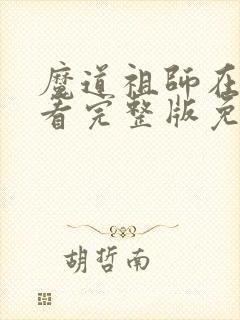 魔道祖師在
看完整版免
胡哲南